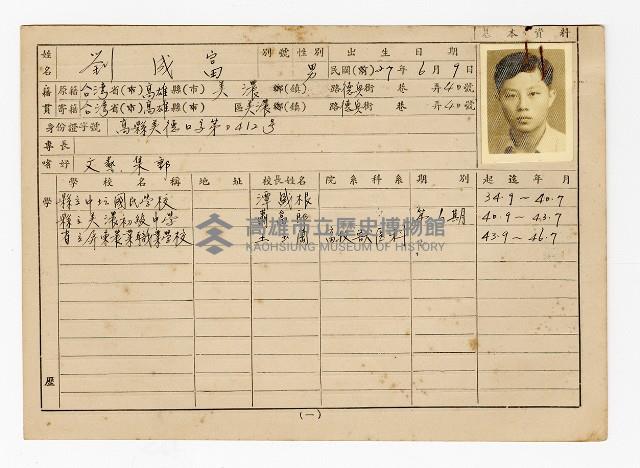 基本資料
姓名 劉成富 別號 性別 男 出生日期 民國(前)27年6月9日
籍貫 原籍 台灣省(市)高雄縣(市)美濃鄉(鎮) 路德興街 巷 弄40號
寄籍 台灣省(市)高雄縣(市) 區美濃鄉(鎮) 路德興街 巷 弄40號
身份證字號 高縣美德口字第0412号
專長
嗜好 文藝.集郵
學歷 學校名稱 地址 校長姓名 院系科系 期別 起迄年月
縣立中坛國民学校 潭盛根 34.9~40.7
縣立美濃初級中学 第1期 40.9~43.7
省立屏東農業職業学校 畜牧獸医科 43.9~46.7
高雄市立歷史博物館
KAOHSIUNG MUSEUM OF HISTORY
(一)